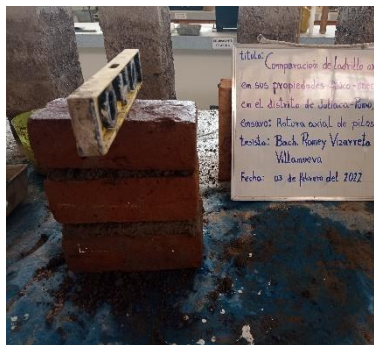 titulo: Comparación de ladrillo
en sus propiedades físico-
en el distrito de Juliaca-Puno
ensayo: Rotura axial de pilas
tesista: Bach. Romey Vizarreta
Villanueva
Fecha: 03 de febrero del 2022